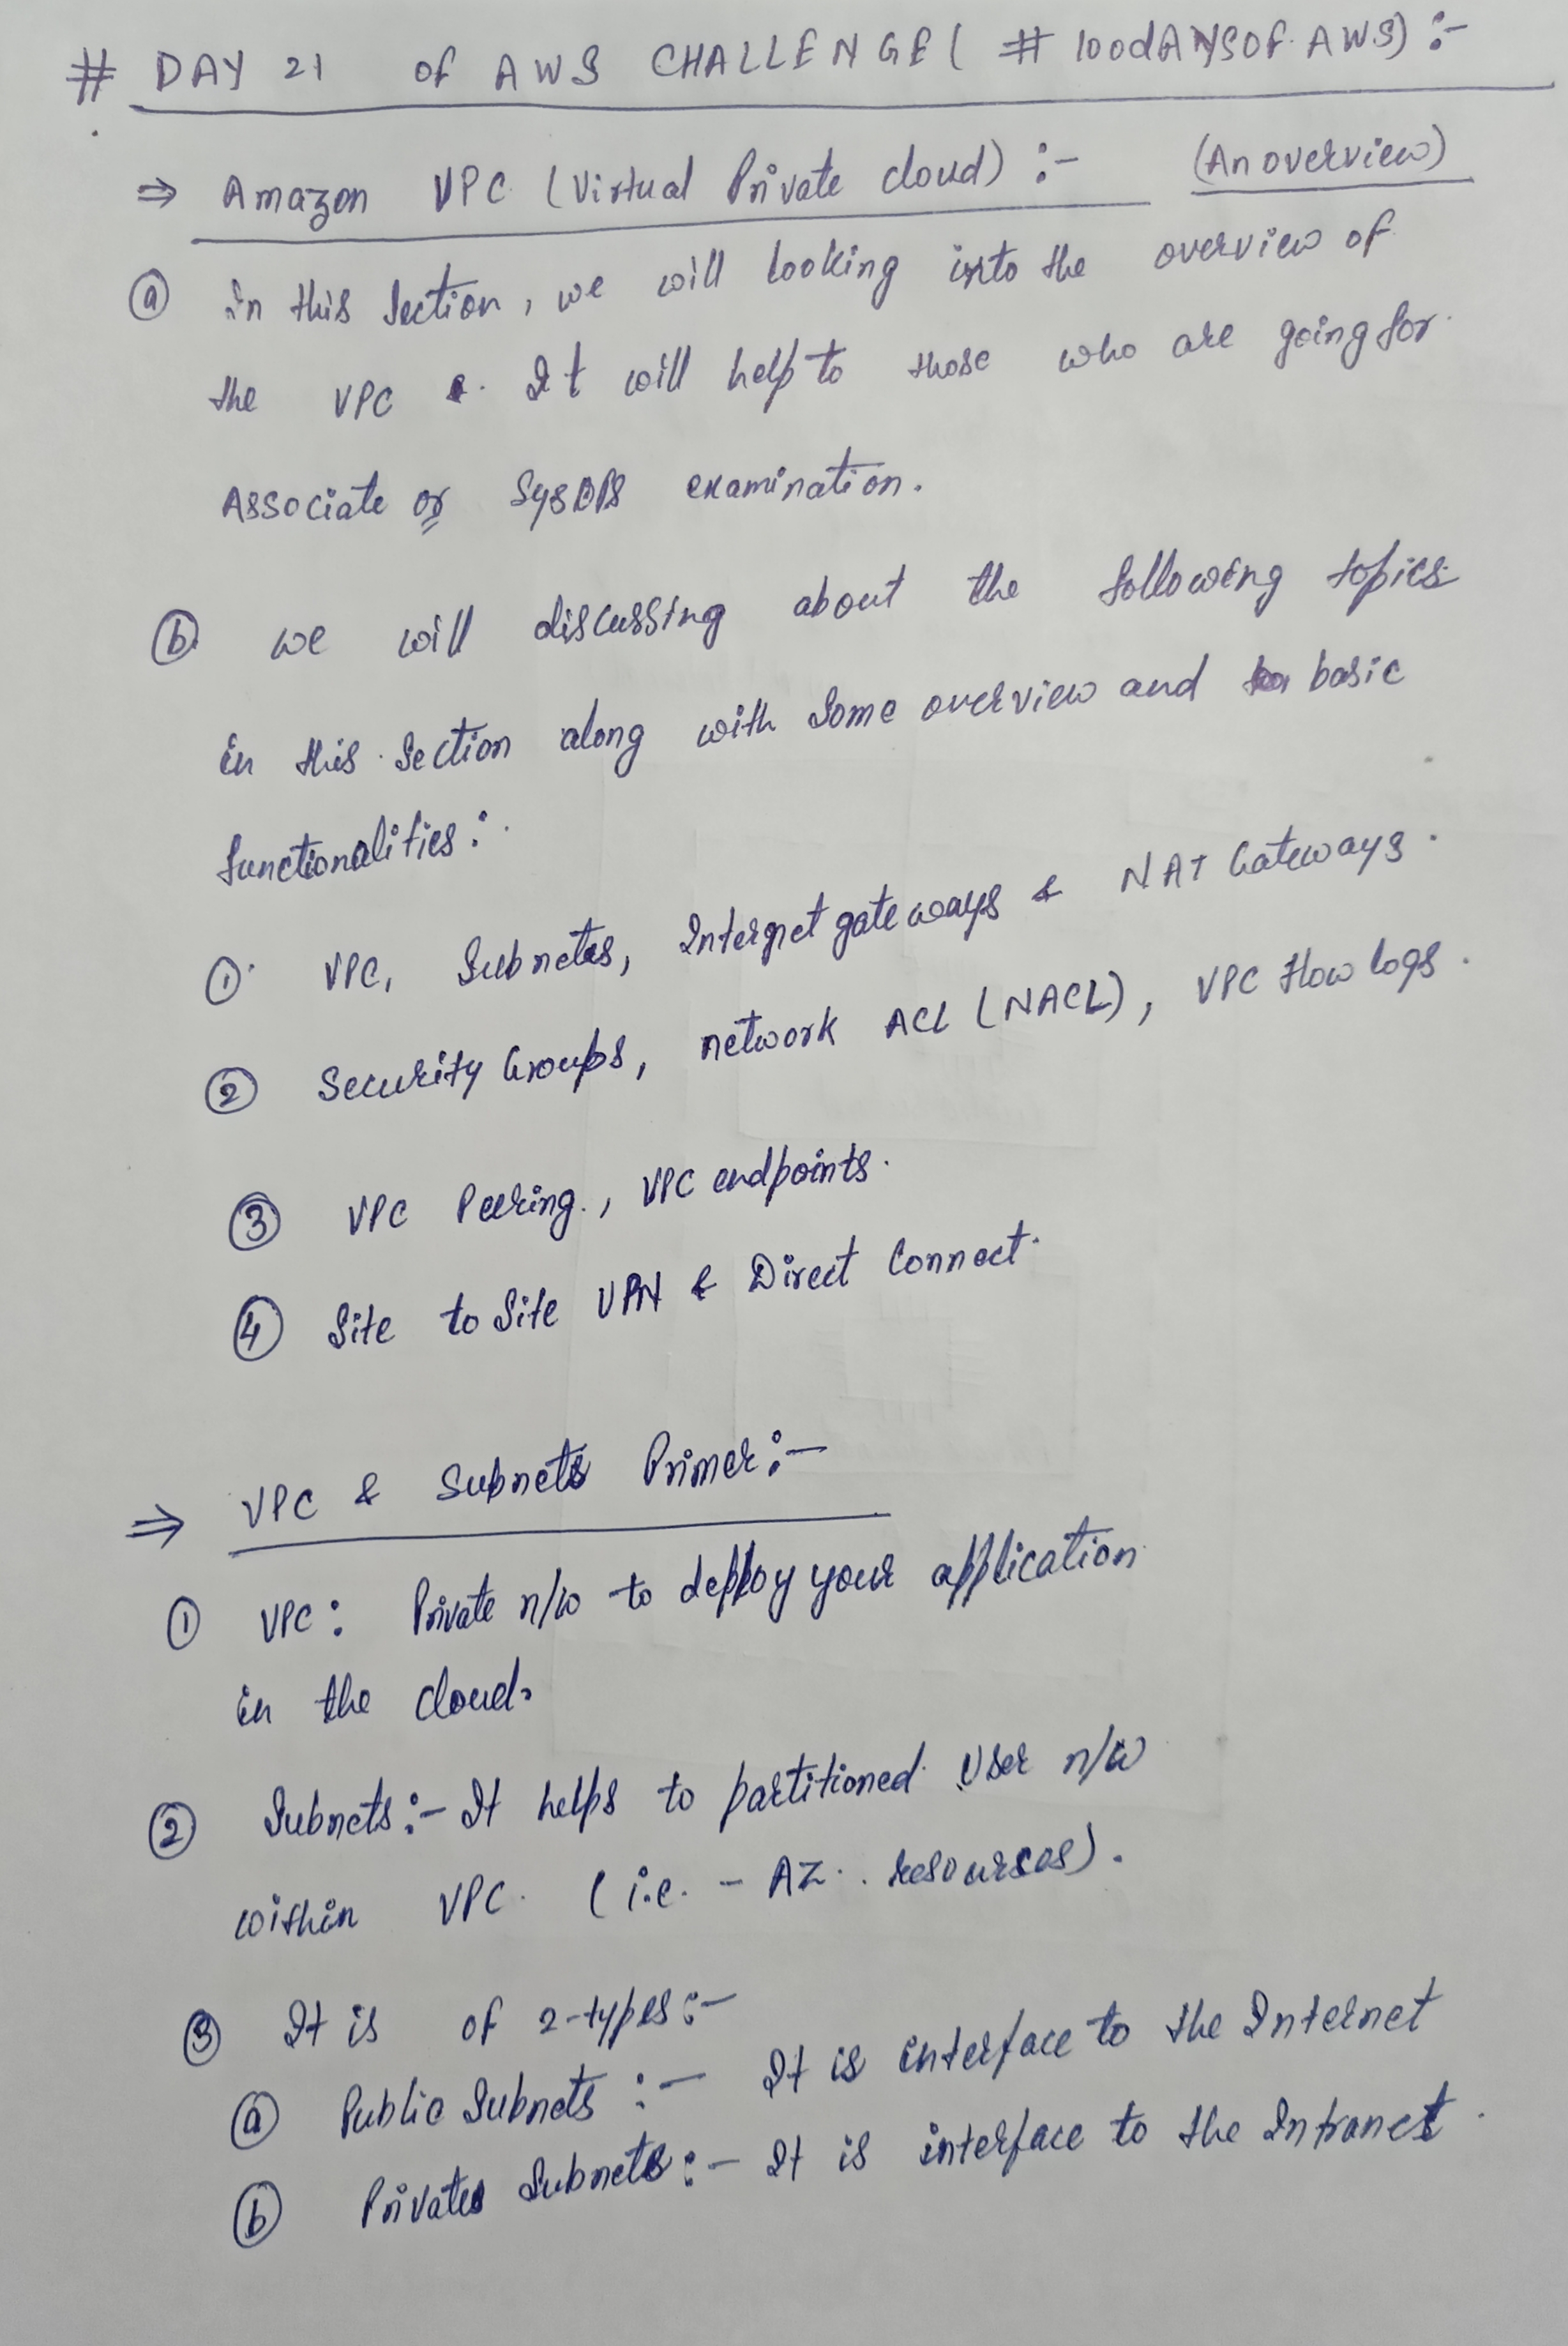 # DAY 21 of AWS CHALLENGE ( # 100dAYSOF AWS) :-
⇒ Amazon VPC (Virtual Private cloud) :- (An overview)
ⓐ In this section, we will looking into the overview of
the VPC . It will help to those who are going for
Associate or SysOPS examination.
ⓑ we will discussing about the following topics
in this section along with some overview and basic
functionalities :
① VPC, Subnets, Internet gateways & NAT Gateways.
② Security Groups, network ACL (NACL), VPC flow logs.
③ VPC Peering, VPC endpoints.
④ Site to Site VPN & Direct Connect.
⇒ VPC & Subnets Primer :-
① VPC : Private n/w to deploy your application
in the cloud.
② Subnets :- It helps to partitioned User n/w
within VPC. (i.e. - AZ . resourses).
③ It is of 2-types :-
ⓐ Public Subnets :- It is interface to the Internet
ⓑ Private Subnets :- It is interface to the Intranet.